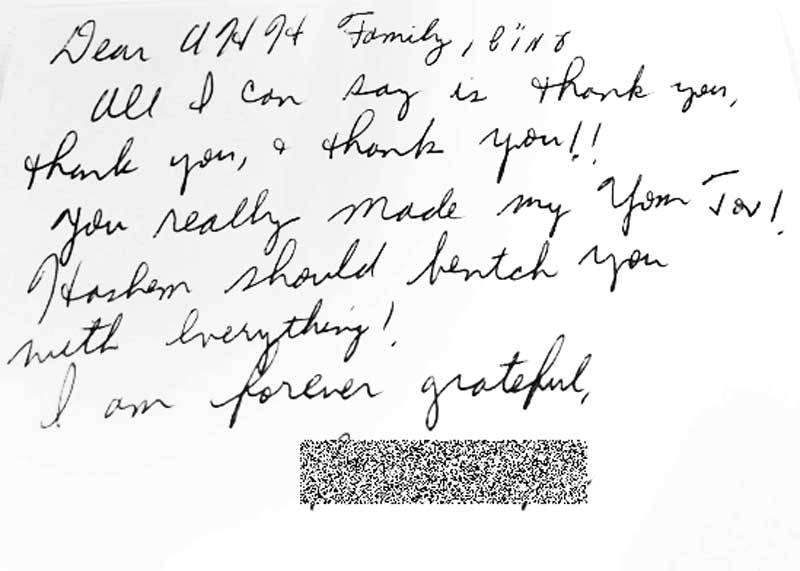 Dear AHH Family, עמו"ש
All I can say is thank you,
thank you, & thank you!!
You really made my Yom Tov!
Hashem should bentch you
with everything!
I am forever grateful,